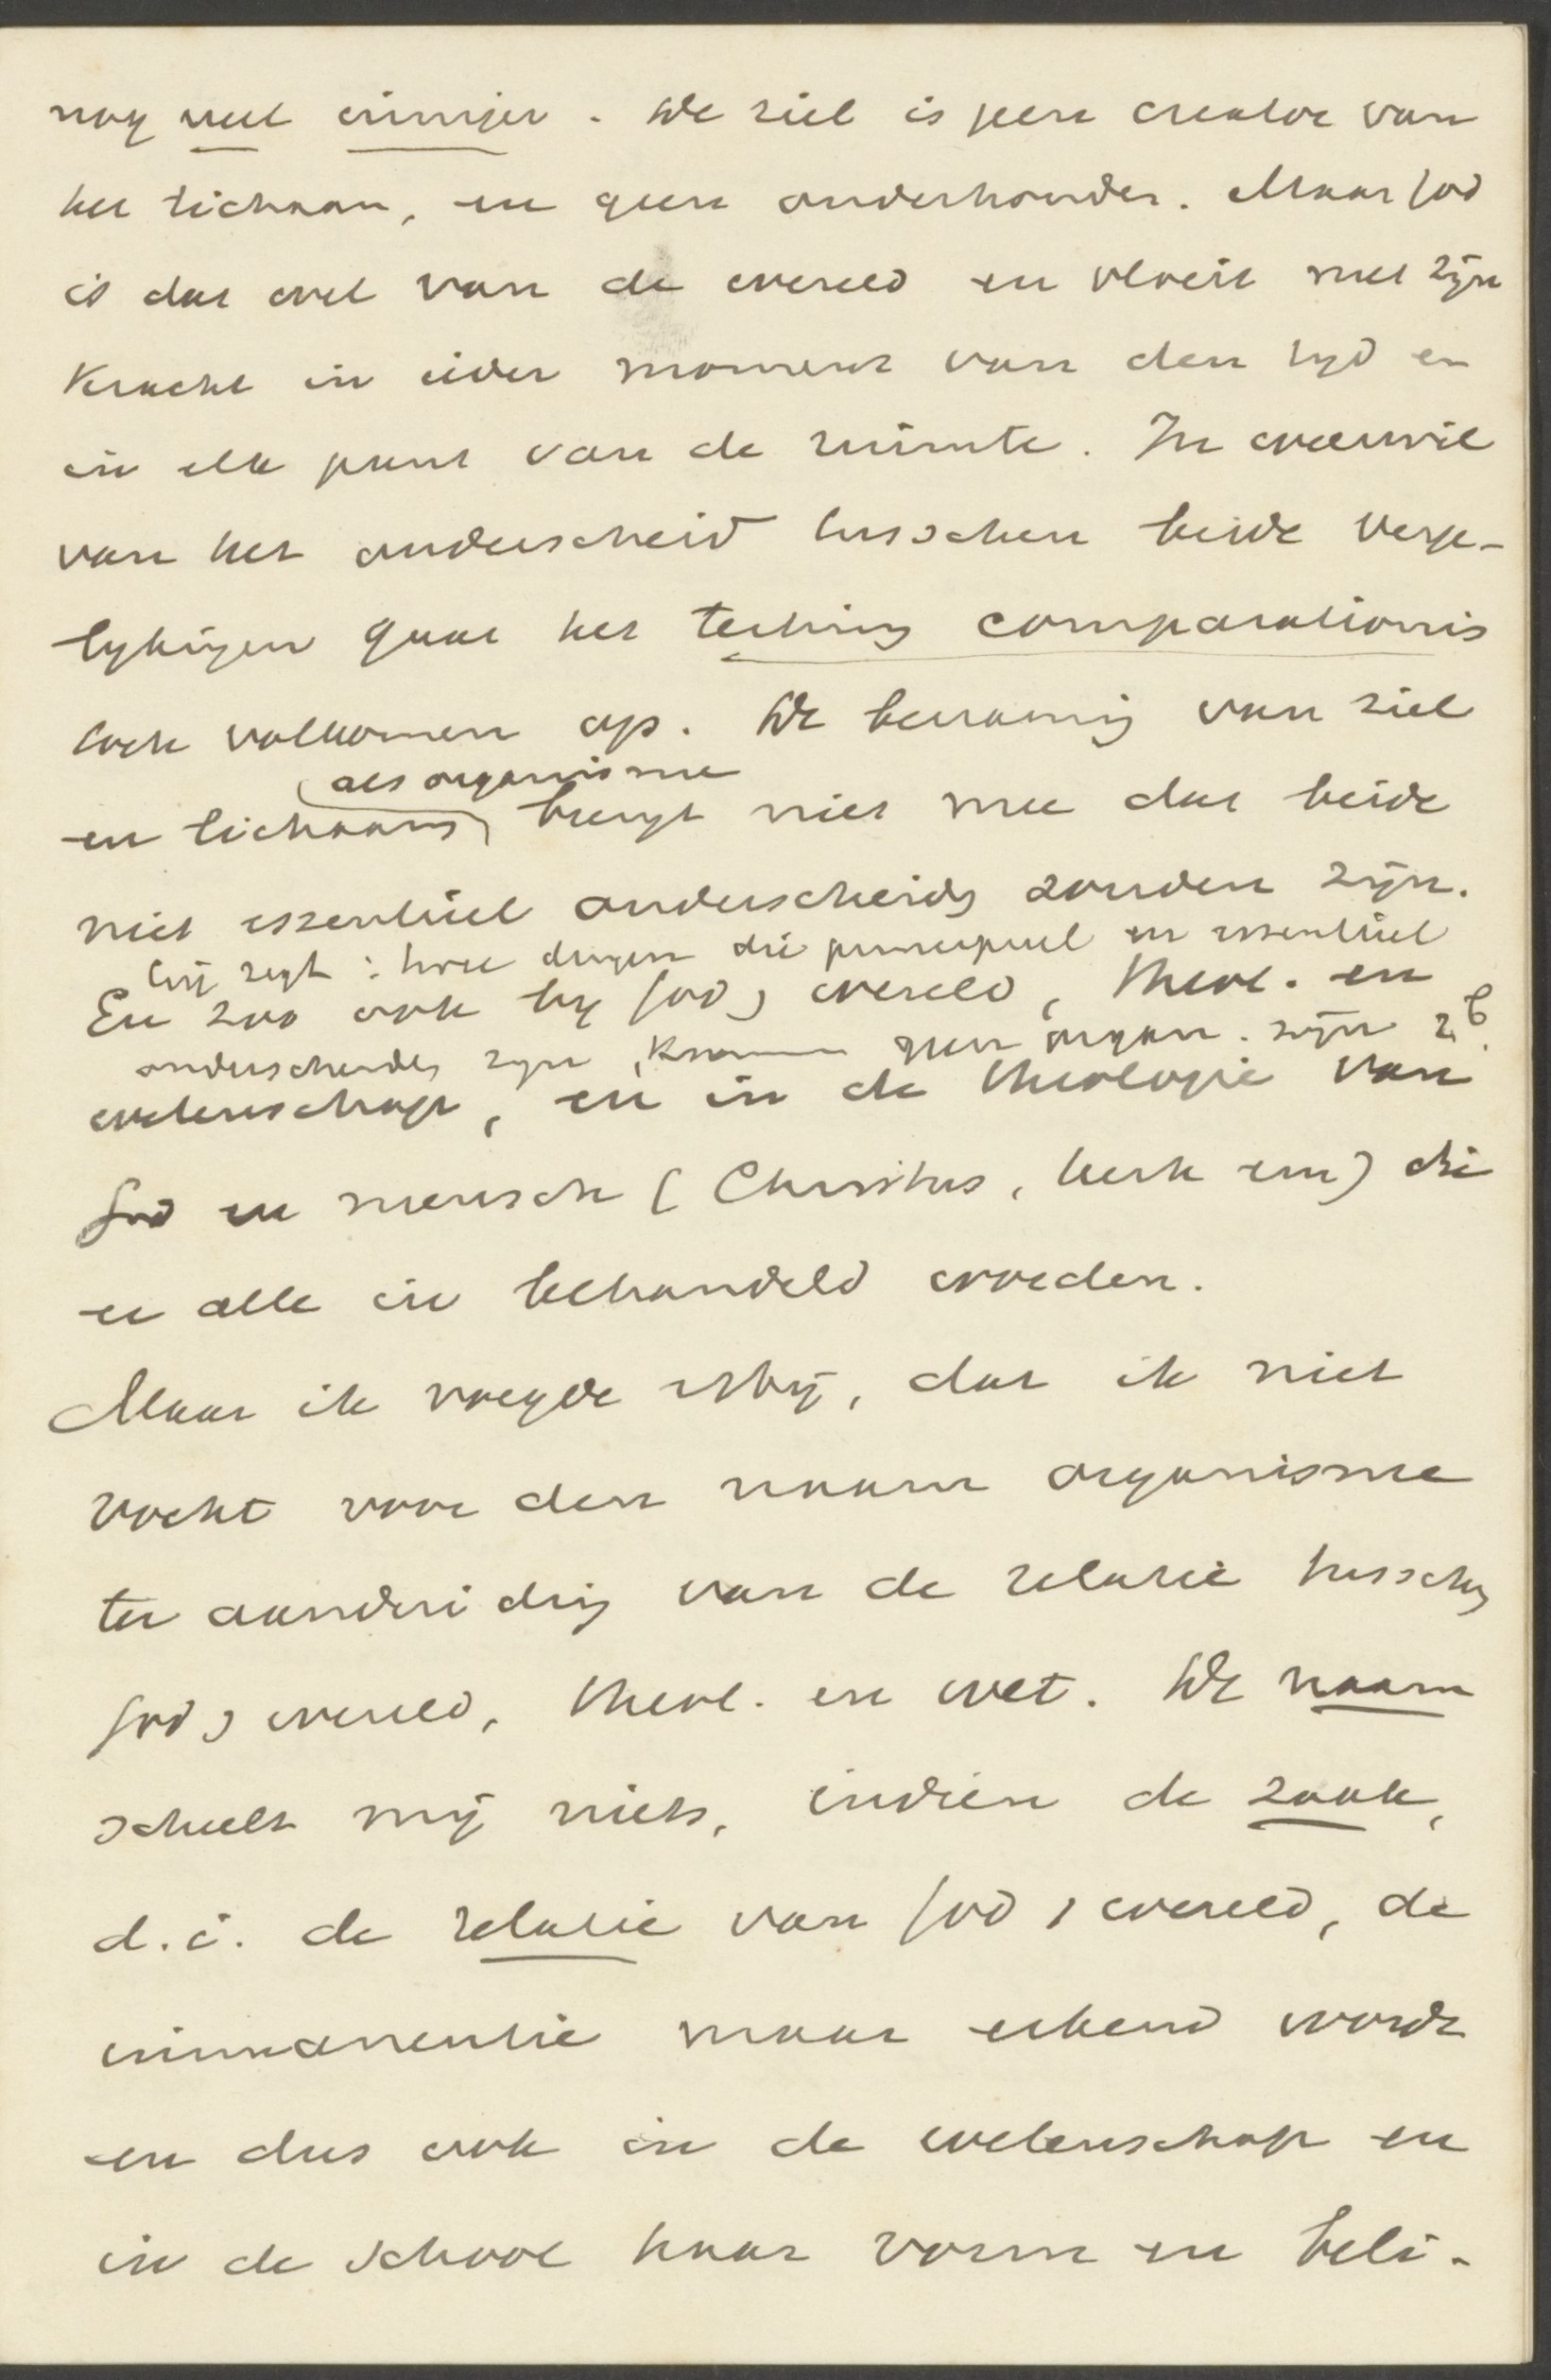 nog veel inniger. De ziel is geen creator van
het lichaam, en geen onderhouder. Maar God
is dat wel van de wereld en vloeit met zijn
kracht in ieder moment van den tijd en
in elk punt van de ruimte. In weerwil
van het onderscheid tusschen beide verge-
lijkingen gaat het tertium comparationis
toch volkomen op. De benaming van ziel
als organisme
en lichaam brengt niet mee dat beide
niet essentieel onderscheiden zouden zijn.
hij zegt: twee dingen die principieel en essentieel
En zoo ook bij God, wereld, theol. en
onderscheiden zijn, kunnen geen organ. zijn z.b.
wetenschap, en in de theologie van
God en mensch (Christus, kerk enz) die
er alle in behandeld worden.
Maar ik voegde erbij, dat ik niet
vocht voor den naam organisme
ter aanduiding van de relatie tusschen
God, wereld, theol. en wet. De naam
scheelt mij niets, indien de zaak,
d.i. de relatie van God, wereld, de
immanentie maar erkend wordt
en dus ook in de wetenschap en
in de school haar vorm en beli-